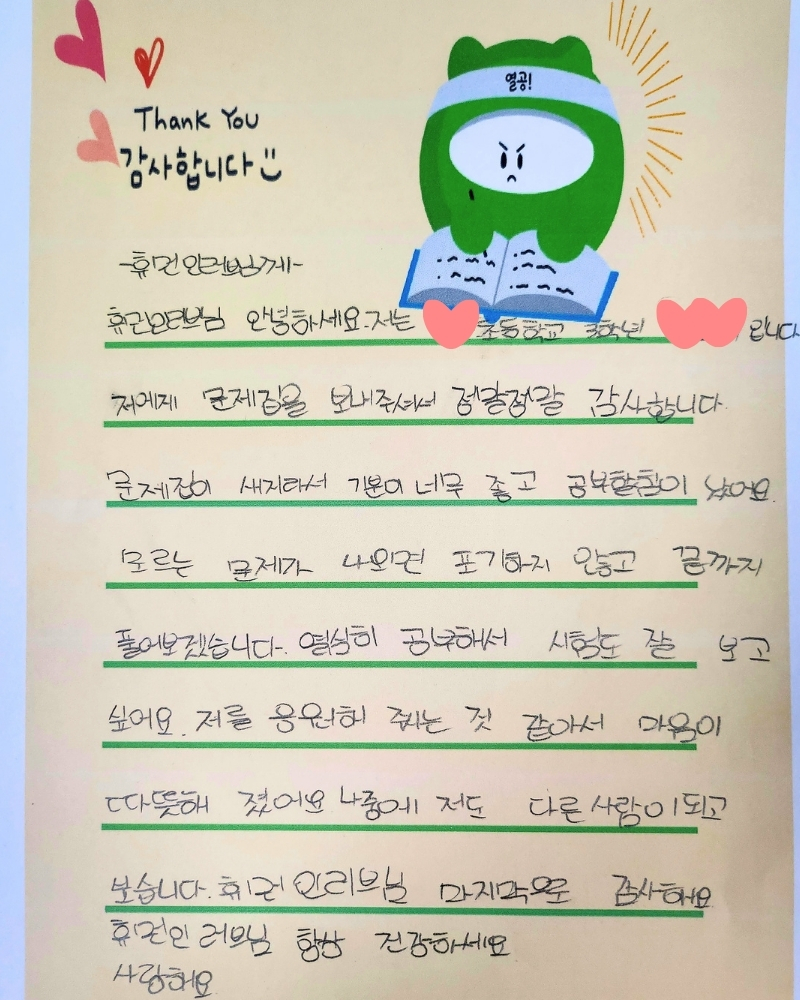 열공!
Thank You
감사합니다
-휴먼인러브님께-
휴먼인러브님 안녕하세요. 저는 초등학교 3학년 입니다
저에게 문제집을 보내주셔서 정말정말 감사합니다
문제집이 새거라서 기분이 너무 좋고 공부할힘이 났어요.
모르는 문제가 나오면 포기하지 않고 끝까지
풀어보겠습니다. 열심히 공부해서 시험도 잘 보고
싶어요. 저를 응원해 주는 것 같아서 마음이
따뜻해 졌어요 나중에 저도 다른 사람이되고
보습니다. 휴먼 인러브님 마지막으로 감사해요
휴먼인 러브님 항상 건강하세요
사랑해요